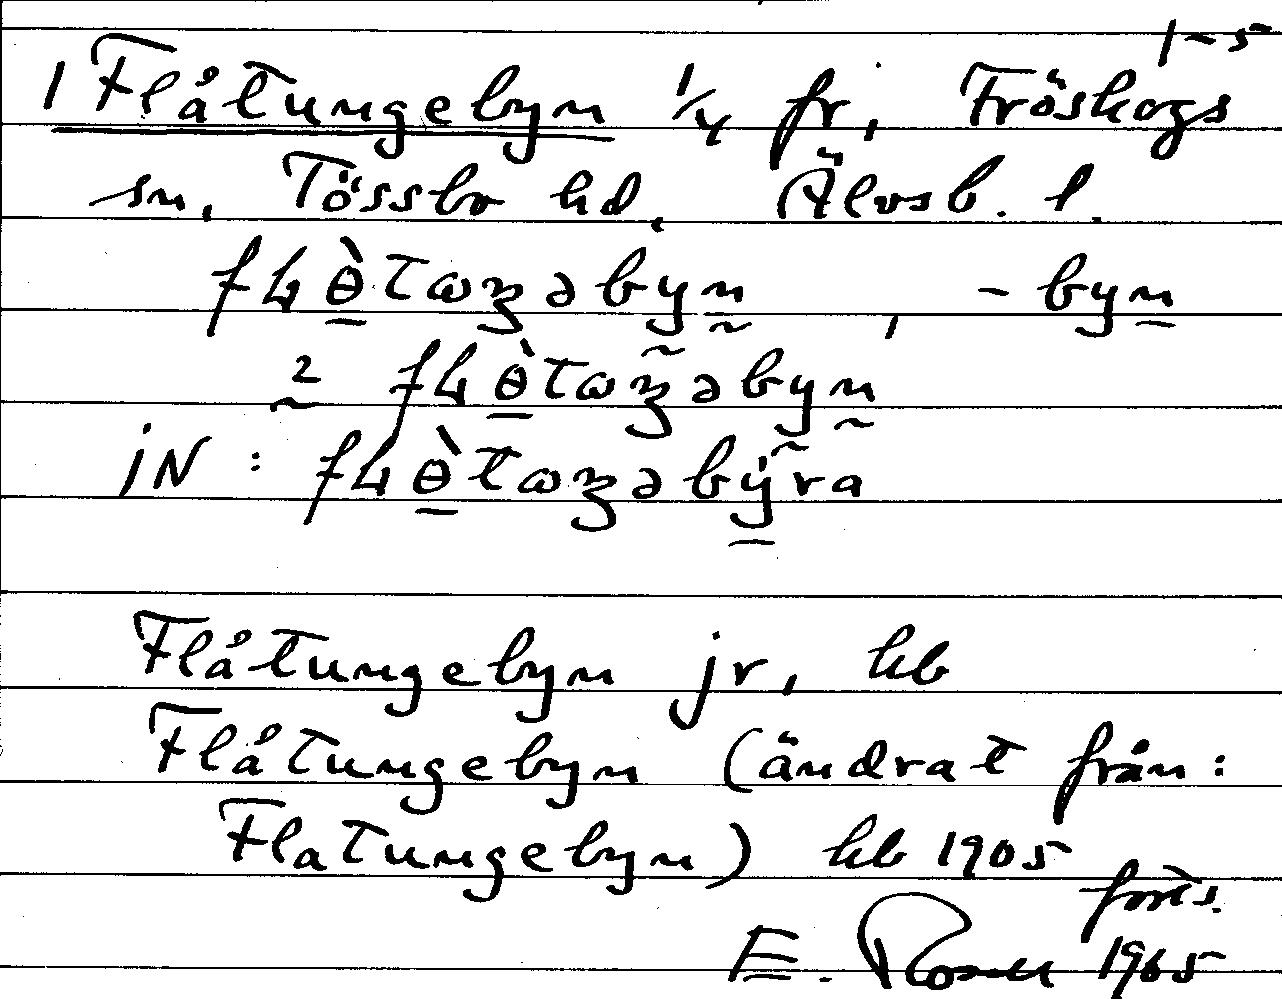 1-5
1 Flåtungebyn 1/4 fr, Fröskogs
sn, Tössbo hd, Älvsb. l.
fʟɵ̀tɷʒəbyn, -byn
2 fʟɵ̀tɷʒəbyn
iN: fʟɵ̀tɷʒəbýra
Flåtungebyn jr, kb
Flåtungebyn (ändrat från:
Flatungebyn) kb 1905
forts.
E. 1965